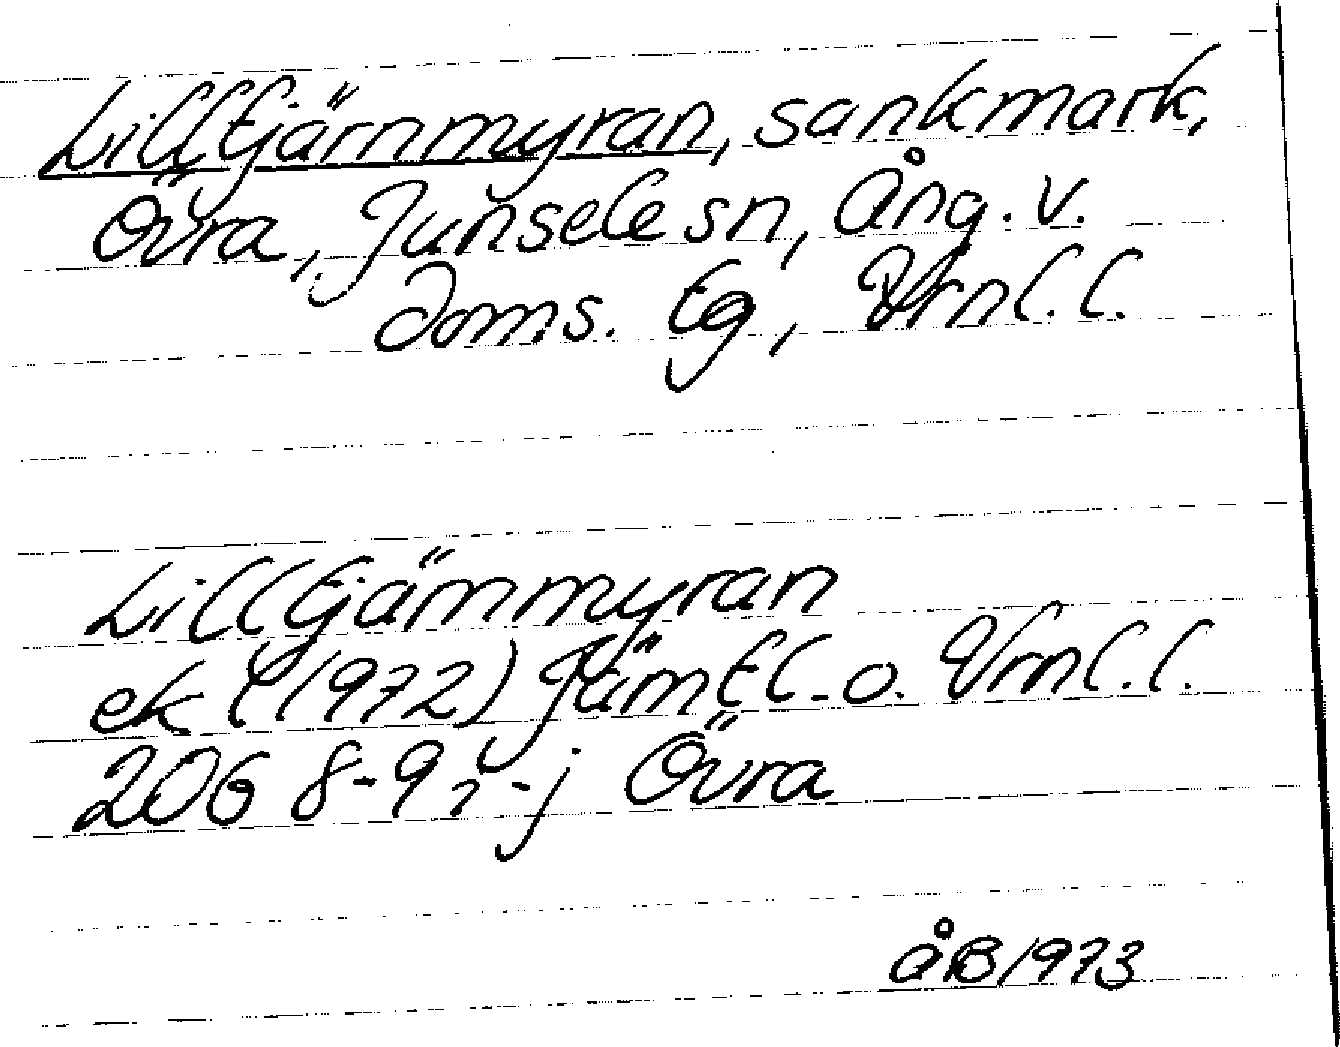 Lilltjärnmyran, sankmark,
Övra, Junsele sn, Ång. v.
doms. tg, Vrnl. l.
Lilltjärnmyran
ek (1972) Jämtl. o. Vrnl. l.
206 8-9 i-j Övra
åB 1973